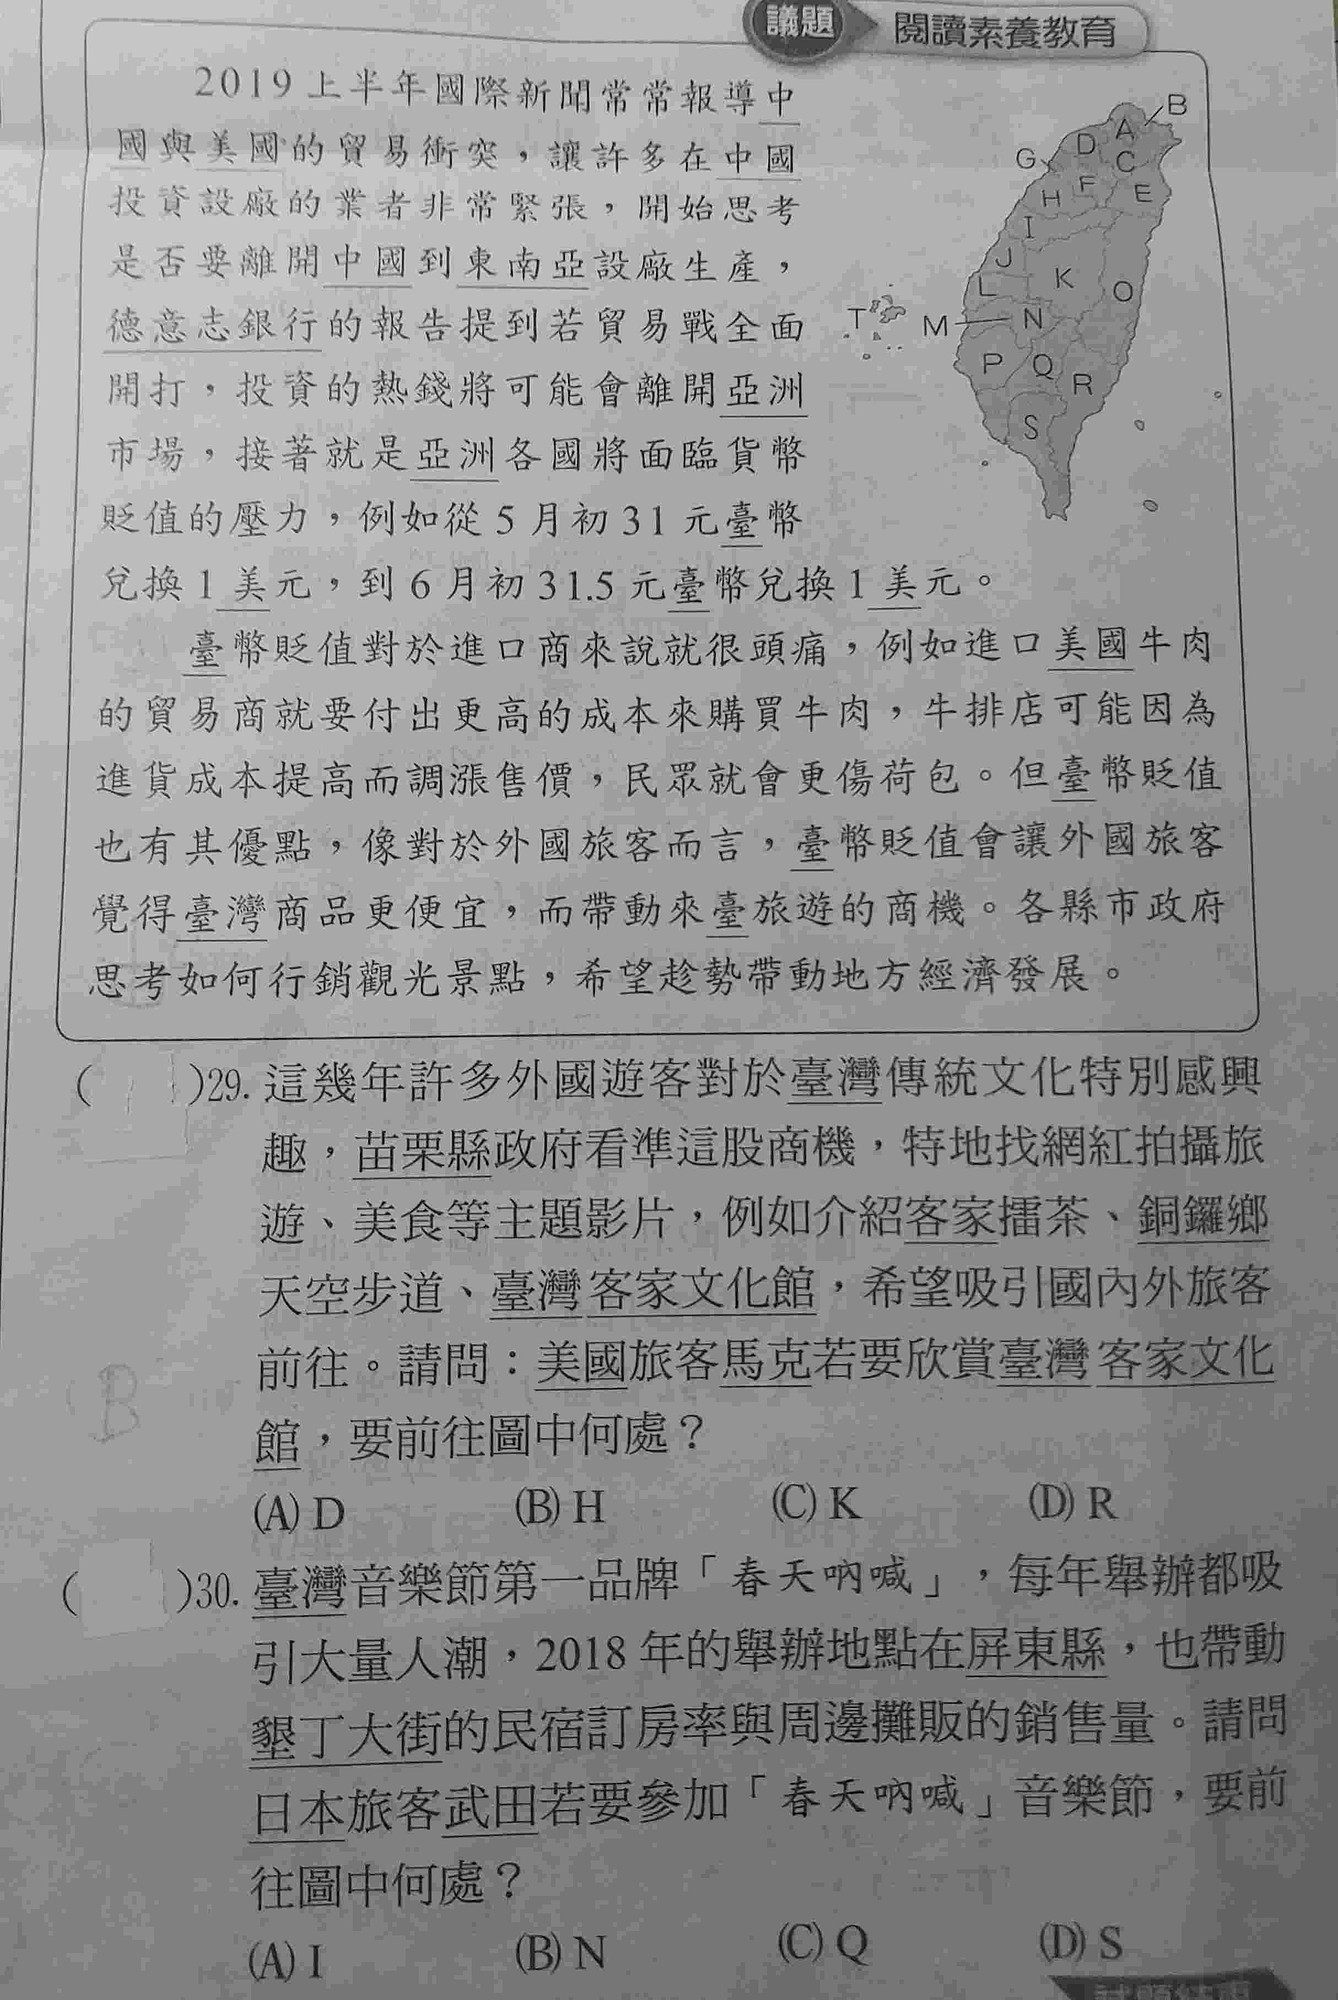 議題 閱讀素養教育
2019上半年國際新聞常常報導中
國與美國的貿易衝突，讓許多在中國
投資設廠的業者非常緊張，開始思考
是否要離開中國到東南亞設廠生產，
德意志銀行的報告提到若貿易戰全面
開打，投資的熱錢將可能會離開亞洲
市場，接著就是亞洲各國將面臨貨幣
貶值的壓力，例如從5月初31元臺幣
兌換1美元，到6月初31.5元臺幣兌換1美元。
B
A
D
C
G
F
E
H
I
J
K
L
O
T
M
N
P
Q
R
S
臺幣貶值對於進口商來說就很頭痛，例如進口美國牛肉
的貿易商就要付出更高的成本來購買牛肉，牛排店可能因為
進貨成本提高而調漲售價，民眾就會更傷荷包。但臺幣貶值
也有其優點，像對於外國旅客而言，臺幣貶值會讓外國旅客
覺得臺灣商品更便宜，而帶動來臺旅遊的商機。各縣市政府
思考如何行銷觀光景點，希望趁勢帶動地方經濟發展。
( )29. 這幾年許多外國遊客對於臺灣傳統文化特別感興
趣，苗栗縣政府看準這股商機，特地找網紅拍攝旅
遊、美食等主題影片，例如介紹客家擂茶、銅鑼鄉
天空步道、臺灣客家文化館，希望吸引國內外旅客
前往。請問：美國旅客馬克若要欣賞臺灣客家文化
B
館，要前往圖中何處？
(A) D (B) H (C) K (D) R
( )30. 臺灣音樂節第一品牌「春天吶喊」，每年舉辦都吸
引大量人潮，2018年的舉辦地點在屏東縣，也帶動
墾丁大街的民宿訂房率與周邊攤販的銷售量。請問
日本旅客武田若要參加「春天吶喊」音樂節，要前
往圖中何處？
(A) I (B) N (C) Q (D) S